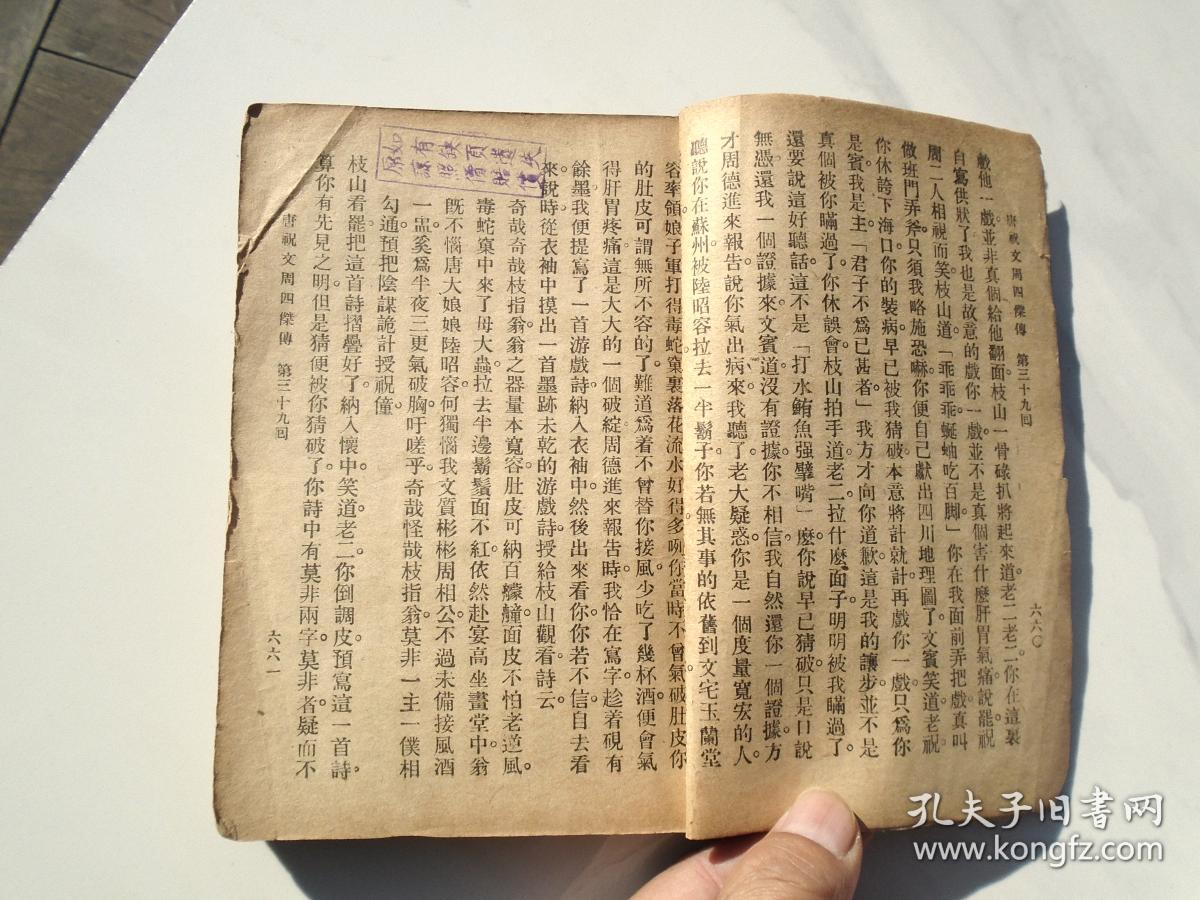 唐祝文周四傑傳　第三十九回
六六〇
戲他一戲並非真個給他翻面枝山一骨碌扒將起來道老二老二你在這裏
自寫供狀了我也是故意的戲你一戲並不是真個害什麽肝胃氣痛說罷祝
周二人相視而笑枝山道「乖乖乖蜒蚰吃百脚」你在我面前弄把戲真叫
做班門弄斧只須我略施恐嚇你便自己獻出四川地理圖了文賓笑道老祝
你休誇下海口你的裝病早已被我猜破本意將計就計再戲你一戲只爲你
是賓我是主「君子不爲已甚者」我方才向你道歉這是我的讓步並不是
真個被你瞞過了你休誤會枝山拍手道老二拉什麽面子明明被我瞞過了
還要說這好聽話這不是「打水鮪魚强擘嘴」麽你說早已猜破只是口說
無憑還我一個證據來文賓道沒有證據你不相信我自然還你一個證據方
才周德進來報告說你氣出病來我聽了老大疑惑你是一個度量寬宏的人
聽說你在蘇州被陸昭容拉去一半鬍子你若無其事的依舊到文宅玉蘭堂
容率領娘子軍打得毒蛇窠裏落花流水好得多咧你當時不曾氣破肚皮你
的肚皮可謂無所不容的了難道爲着不曾替你接風少吃了幾杯酒便會氣
得肝胃疼痛這是大大的一個破綻周德進來報告時我恰在寫字趁着硯有
餘墨我便提寫了一首游戲詩納入衣袖中然後出來看你你若不信自去看
來說時從衣袖中摸出一首墨跡未乾的游戲詩授給枝山觀看詩云
奇哉奇哉枝指翁翁之器量本寬容肚皮可納百艨艟面皮不怕老逆風
毒蛇窠中來了母大蟲拉去半邊鬍鬚面不紅依然赴宴高坐畫堂中翁
旣不惱唐大娘娘陸昭容何獨惱我文質彬彬周相公不過未備接風酒
一盅奚爲半夜三更氣破胸吁嗟乎奇哉怪哉枝指翁莫非一主一僕相
勾通預把陰謀詭計授祝僮
枝山看罷把這首詩摺疊好了納入懷中笑道老二你倒調皮預寫這一首詩
算你有先見之明但是猜便被你猜破了你詩中有莫非兩字莫非者疑而不
唐祝文周四傑傳　第三十九回
六六一
如有缺頁遺失
原諒照價賠償
孔夫子旧书网
www.kongfz.com